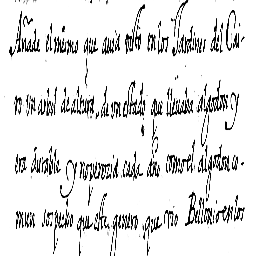 Añade el mismo que auia visto en los Jardines del Cai-
ro vn arbol de altura, de vn estado que lleuaba algodon y
era durable y no perecia cada año como el algodon co-
mun los pedio que este genero que vio Bellonio en los